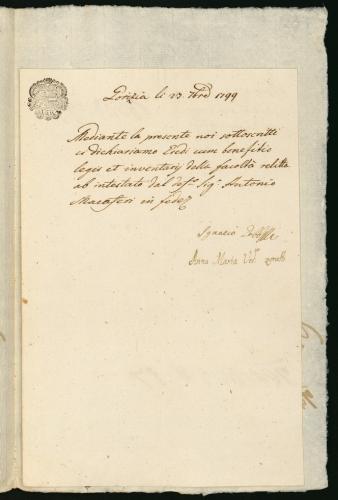 Gorizia li 23. 7bre 1799
Mediante la presente noi sottoscritti
ci dichiariamo Eredi cum beneficio
legis et inventarij della facoltà relitta
ab intestato dal def.o Sig.r Antonio
in fede
Ignazio
Anna Maria Ved.